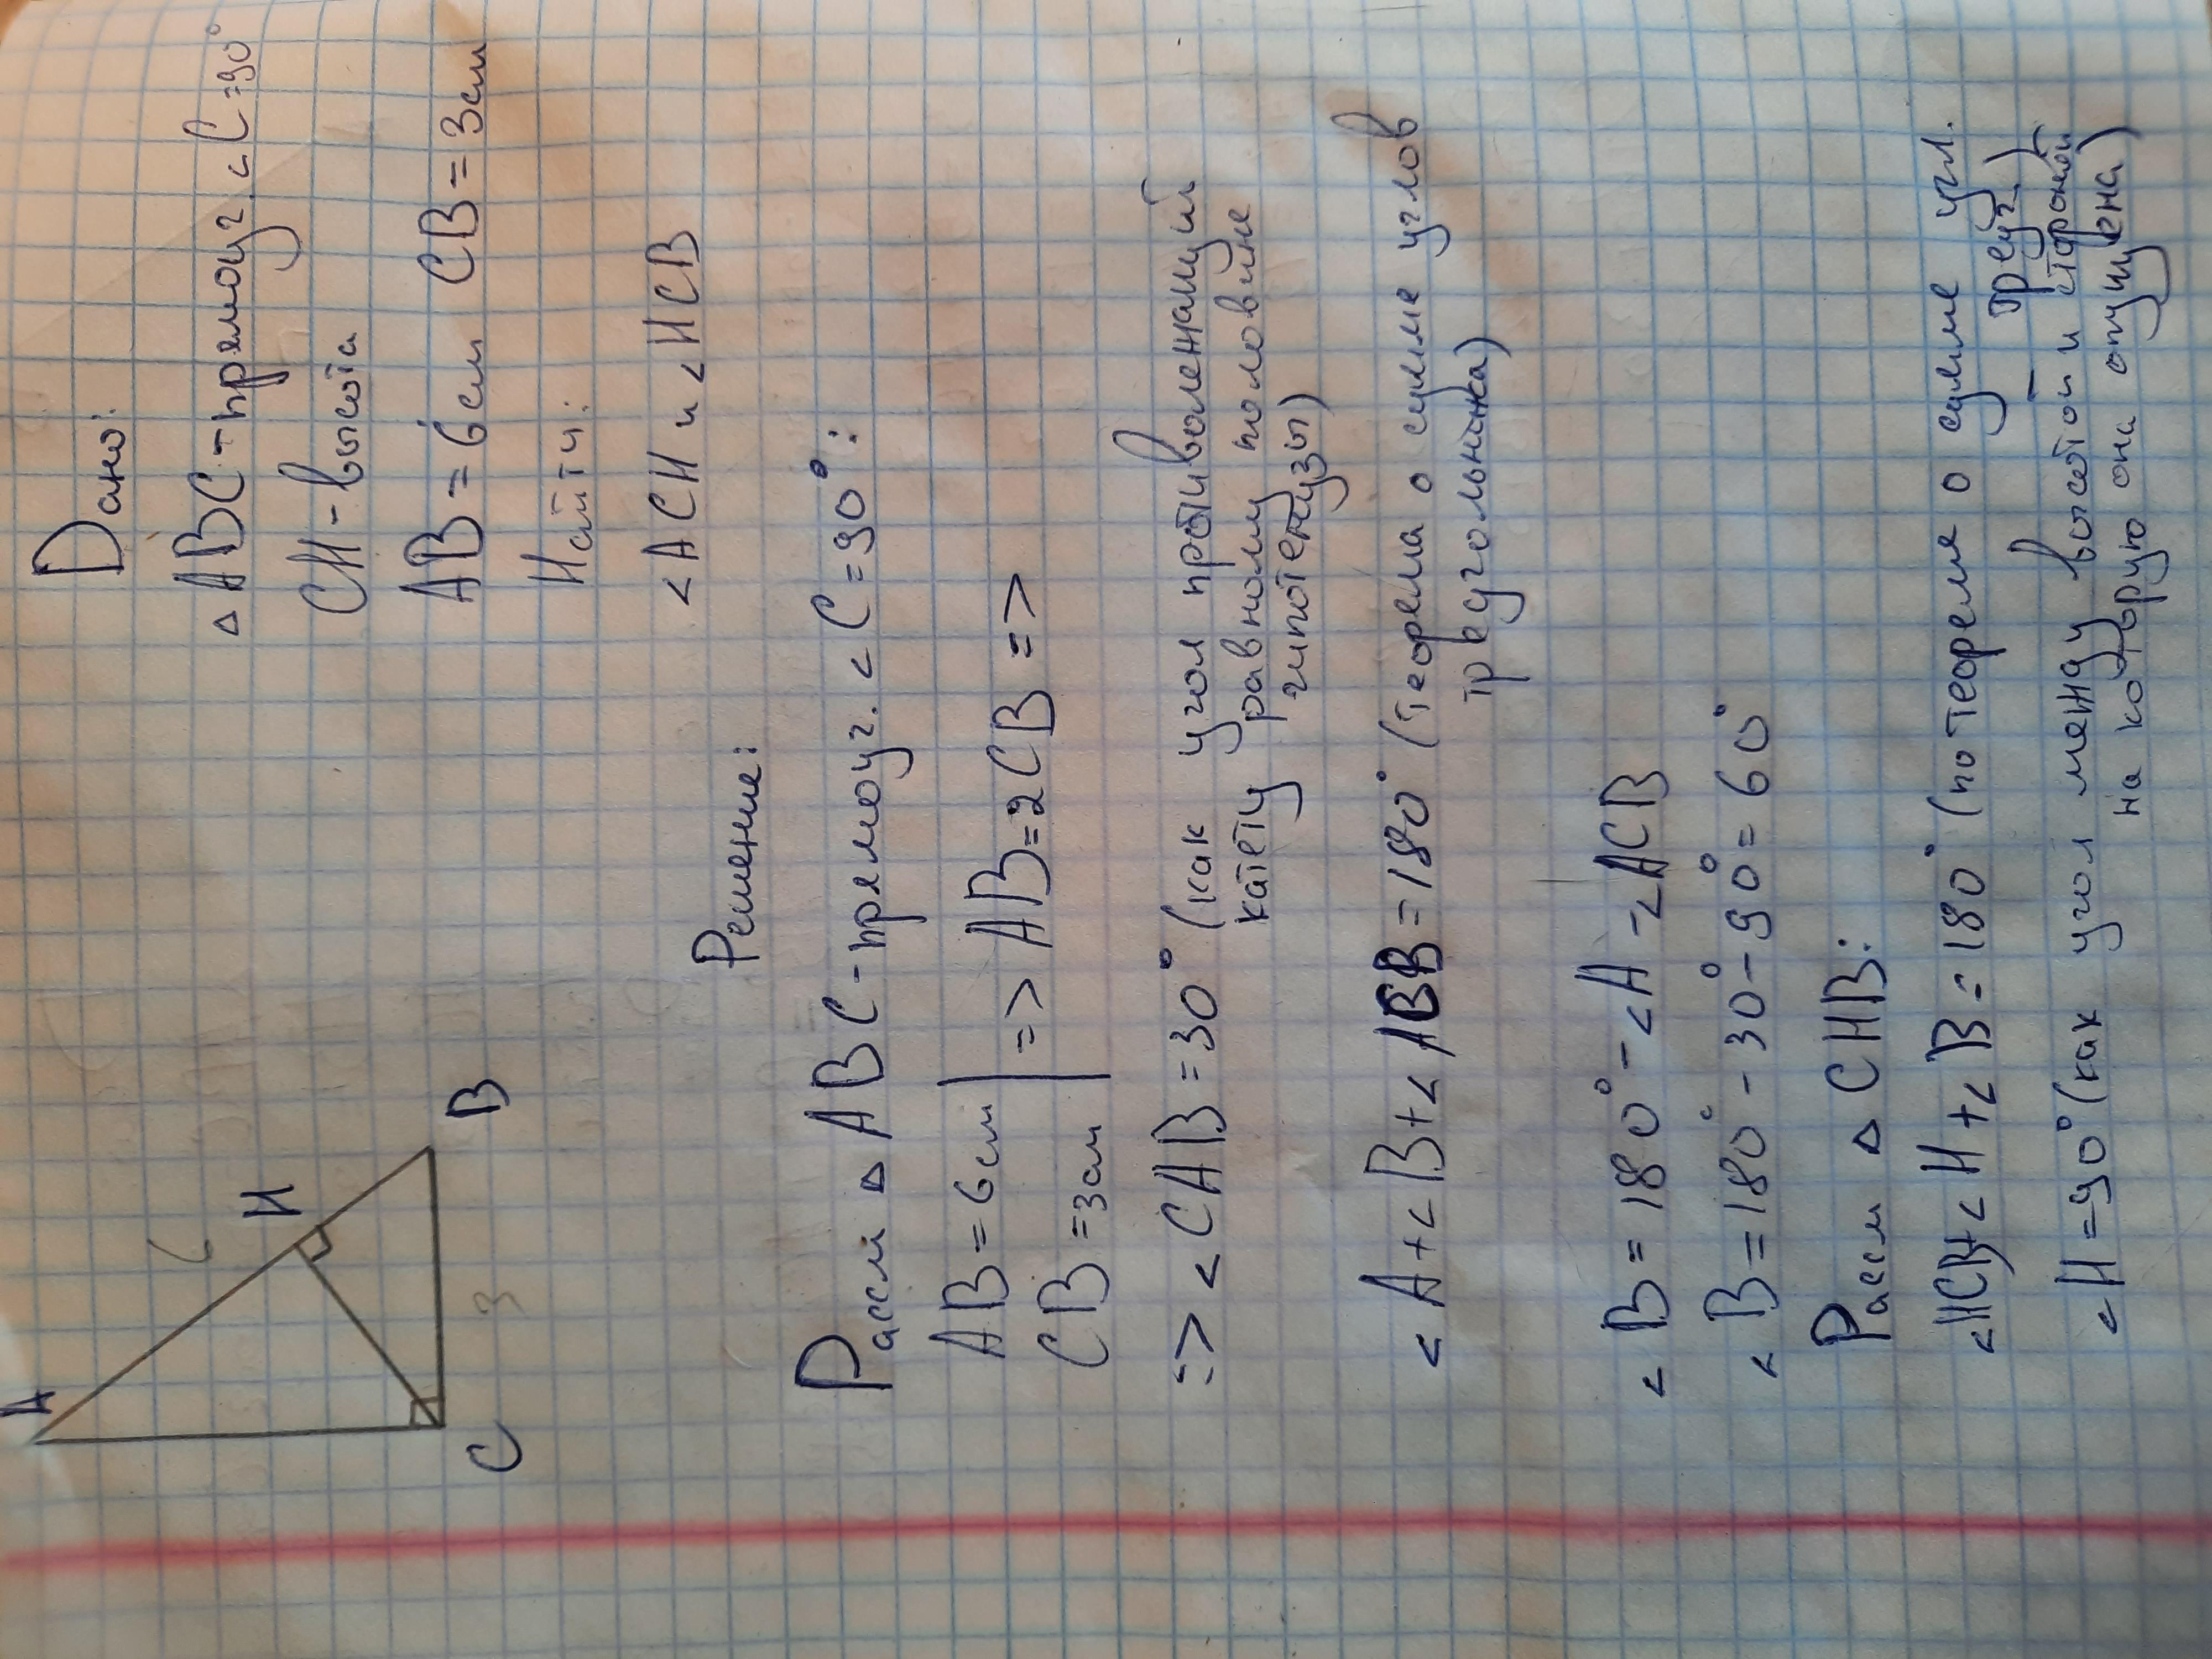 A
6
H
C
3
B
Дано:
△ ABC - прямоуг. <C=90°
CH - высота
AB = 6 см CB = 3 см
Найти:
<ACH и <HCB
Решение:
Рассм △ ABC - прямоуг. <C=90°:
AB = 6 см
CB = 3 см
=> AB=2CB =>
=> <CAB=30° (как угол противолежащий
катету равному половине
гипотенузы)
<A+<B+<ACB=180° (теорема о сумме углов
треугольника)
<B=180°-<A-<ACB
<B=180°-30°-90°=60°
Рассм △ CHB:
<HCB+<H+<B=180° (по теореме о сумме угл.
треуг.)
<H=90° (как угол между высотой и стороной
на которую она опущена)